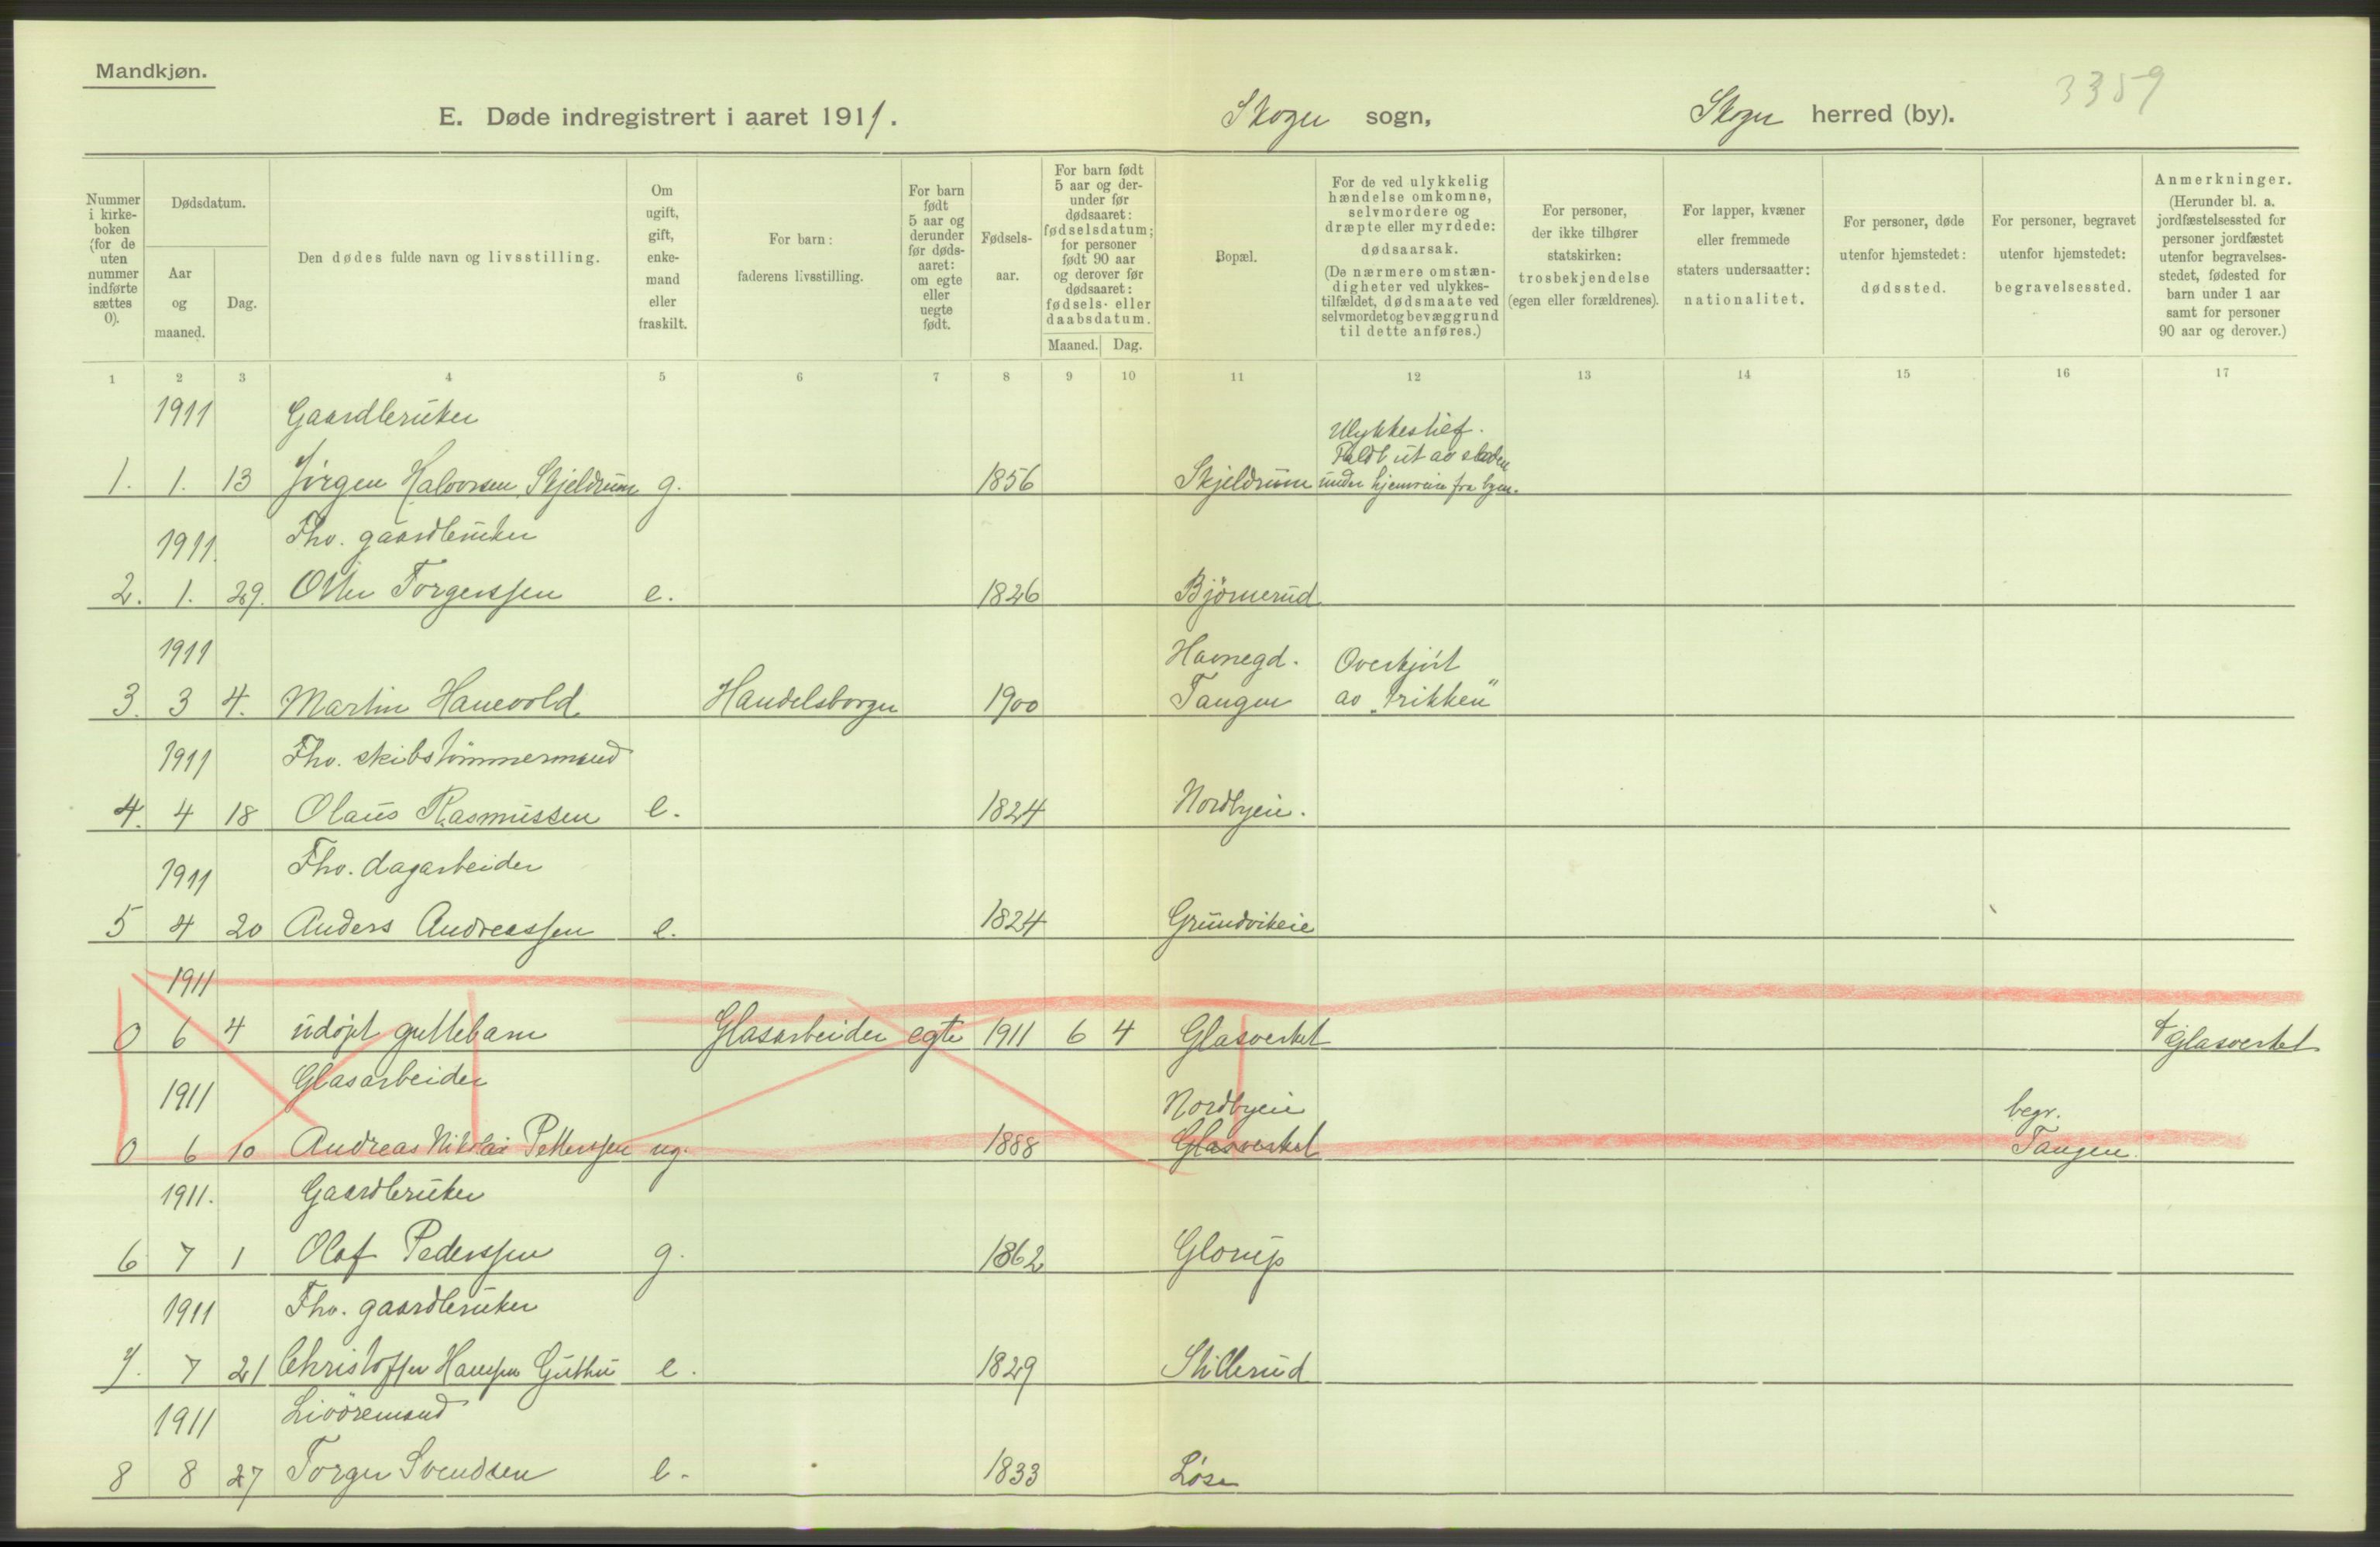 Mandkjøn.
3359
E. Døde indregistrert i aaret 1911. Skoger sogn, Skoger herred (by).
Nummer i kirkeboken (for de uten nummer indførte sættes 0).
Dødsdatum.
Aar og maaned.
Dag.
Den dødes fulde navn og livsstilling.
Om ugift, gift, enkemand eller fraskilt.
For barn: faderens livsstilling.
For barn født 5 aar og derunder før dødsaaret: om egte eller uegte født.
Fødselsaar.
For barn født 5 aar og derunder før dødsaaret: fødselsdatum; for personer født 90 aar og derover før dødsaaret: fødsels- eller daabsdatum.
Maaned. Dag.
Bopæl.
For de ved ulykkelig hændelse omkomne, selvmordere og dræpte eller myrdede: dødsaarsak. (De nærmere omstændigheter ved ulykkestilfældet, dødsmaate ved selvmordet og bevæggrund til dette anføres.)
For personer, der ikke tilhører statskirken: trosbekjendelse (egen eller forældrenes).
For lapper, kvæner eller fremmede staters undersaatter: nationalitet.
For personer, døde utenfor hjemstedet: dødssted.
For personer, begravet utenfor hjemstedet: begravelsessted.
Anmerkninger. (Herunder bl. a. jordfæstelsessted for personer jordfæstet utenfor begravelsesstedet, fødested for barn under 1 aar samt for personer 90 aar og derover.)
1 2 3 4 5 6 7 8 9 10 11 12 13 14 15 16 17
1911 Gaardbruker Ulykkestilf.
Faldt ut av slæden
1. 1. 13 Jörgen Halvorsen Skjeldrum g. 1856 Skjeldrum under hjemreise fra byen.
1911. Fhv. gaardbruker
2. 1. 29. Otter Torgerssen e. 1826 Björnerud
1911 Havnegd. Overkjört
3. 3 4. Martin Hanevold Handelsborger 1900 Tangen av "Trikken"
1911 Fhv. skibstömmermand
4. 4 18 Olaus Rasmussen e. 1824 Nordbyeie.
1911 Fhv. dagarbeider
5 4 20 Anders Andreassen e. 1824 Grundvikeie
1911
0 6 4 udöpt guttebarn Glasarbeider egte 1911 6 4 Glasverket f Glasverket
1911 Glasarbeider Nordbyeie begr.
0 6 10 Andreas Nikolai Pettersen ug. 1888 Glasverket Tangen.
1911. Gaardbruker
6 7 1 Olaf Pederssen g. 1862 Glorup
1911 Fhv. gaardbruker
7. 7 21 Christoffer Hansen Guthu e. 1829 Skillerud
1911 Livöremand
8 8 27 Torger Svendsen e. 1833 Løse